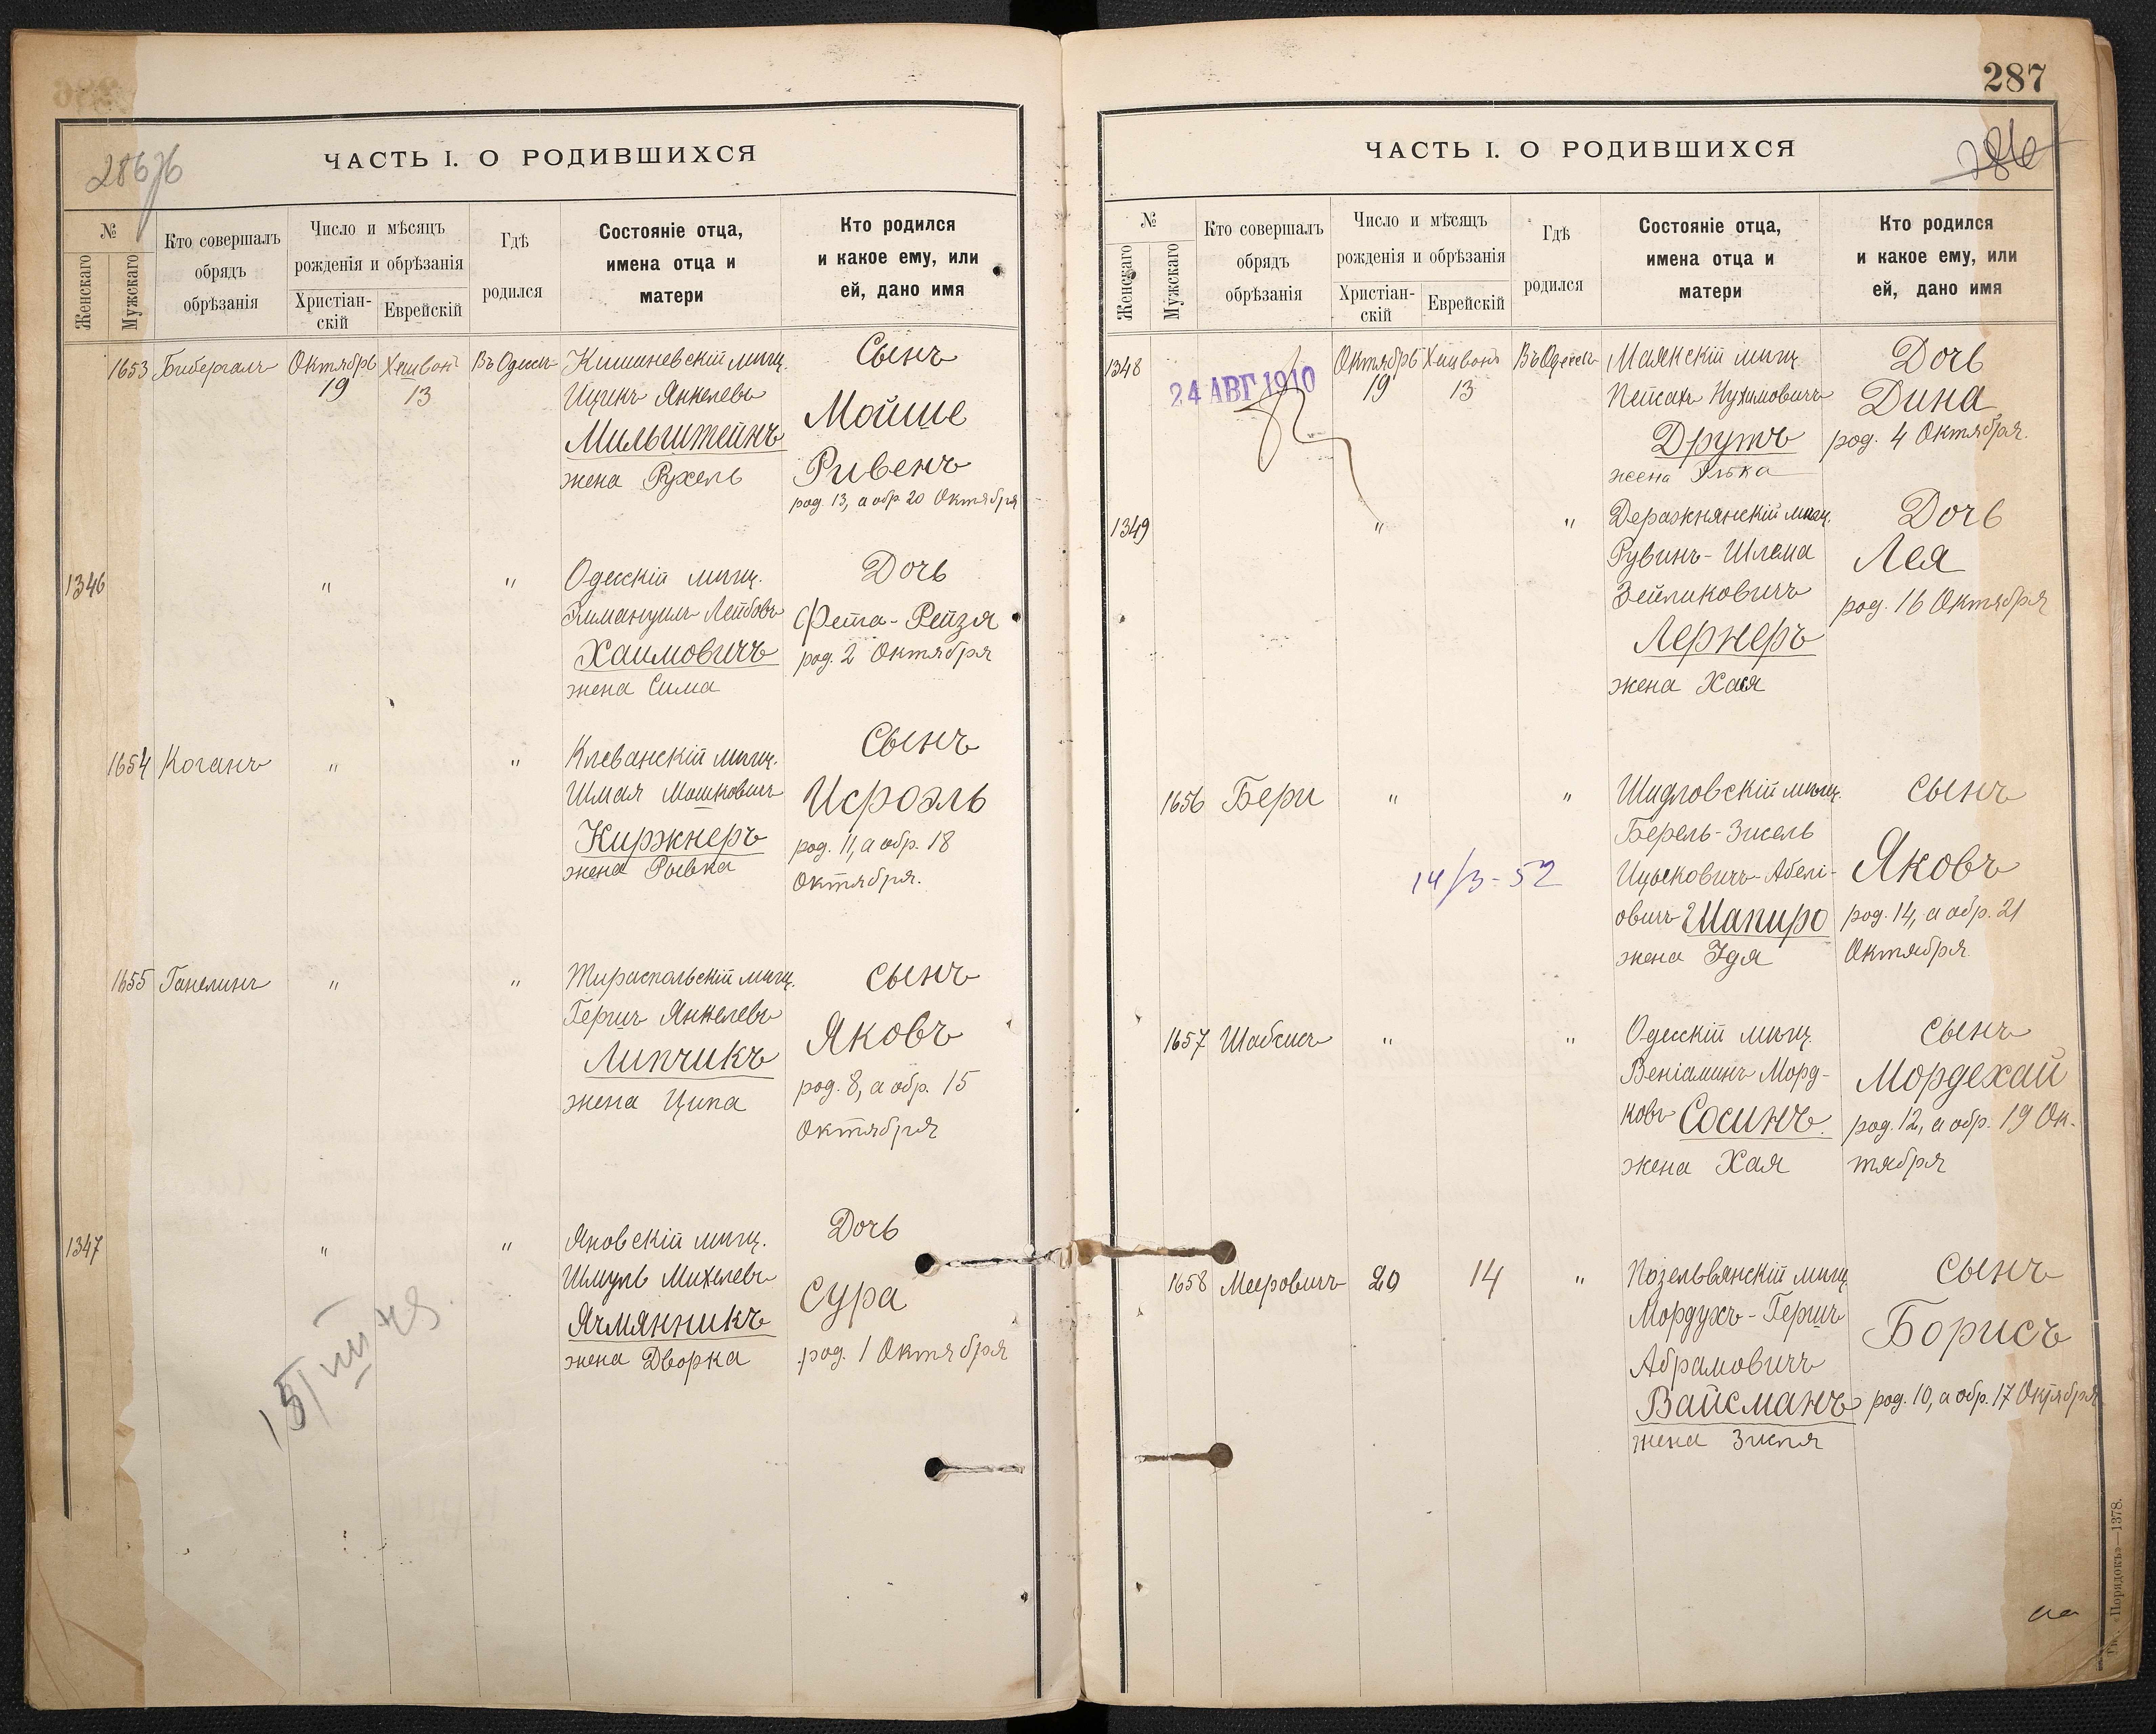 286 об
ЧАСТЬ I. О РОДИВШИХСЯ
№
Женскаго
Мужскаго
Кто совершалъ
обрядъ
обрѣзанія
Число и мѣсяцъ
рожденія и обрѣзанія
Христіан-
скій
Еврейскій
Гдѣ
родился
Состояніе отца,
имена отца и
матери
Кто родился
и какое ему, или
ей, дано имя
1653 Бибергалъ Октябрь Хешвонъ Въ Одессѣ Кишиневскій мѣщ. Сынъ
19 13 Ицикъ Янкелевъ Мойше
Мильштейнъ Ривенъ
жена Рухель род. 13, а обр 20 Октября
1346 " " Одесскій мѣщ. Дочь
Лейбовъ Фейга-Рейзя
Хаимовичъ род. 2 Октября
жена Сима
1654 Коганъ " " Клеванскій мѣщ. Сынъ
Шмая Мошковичъ Исроэль
Киржнеръ род. 11, а обр. 18
жена Рывка Октября.
1655 Ганелинъ " " Тираспольскій мѣщ. Сынъ
Гершъ Янкелевъ Яковъ
Липчикъ род. 8, а обр. 15
жена Ципа Октября
1347 " " Яновскій мѣщ. Дочь
Шмуль Михелевъ Сура
Ячмянникъ род. 1 Октября
жена Дворка
287
286
ЧАСТЬ I. О РОДИВШИХСЯ
№
Женскаго
Мужскаго
Кто совершалъ
обрядъ
обрѣзанія
Число и мѣсяцъ
рожденія и обрѣзанія
Христіан-
скій
Еврейскій
Гдѣ
родился
Состояніе отца,
имена отца и
матери
Кто родился
и какое ему, или
ей, дано имя
1348 Октябрь Хешвонъ Въ Одессѣ Маякскій мѣщ. Дочь
24 АВГ 1910 19 13 Пейсахъ Нухимовичъ Дина
Друтъ род. 4 Октября.
жена Элька
1349 " " Деражнянскій мѣщ. Дочь
Рувинъ-Шлема Лея
Зейликовичъ род. 16 Октября
Лернеръ
жена Хая
1656 Бери " " Шидловскій мѣщ. Сынъ
Берель-Зисель
14/3-52 Ицьковичъ-Абелі- Яковъ
овичъ Шапиро род. 14, а обр. 21
жена Идя Октября
1657 Шабсисъ " " Одесскій мѣщ. Сынъ
Веніаминъ Морд- Мордехай
ковъ Сосинъ. род. 12, а обр. 19 Ок-
жена Хая тября
1658 Мееровичъ 20 14 " Позельвянскій мѣщ. Сынъ
Мордухъ-Гершъ Борисъ
Абрамовичъ
Вайсманъ род. 10, а обр. 17 Октября
жена Зисля
«Порядокъ»—1378.